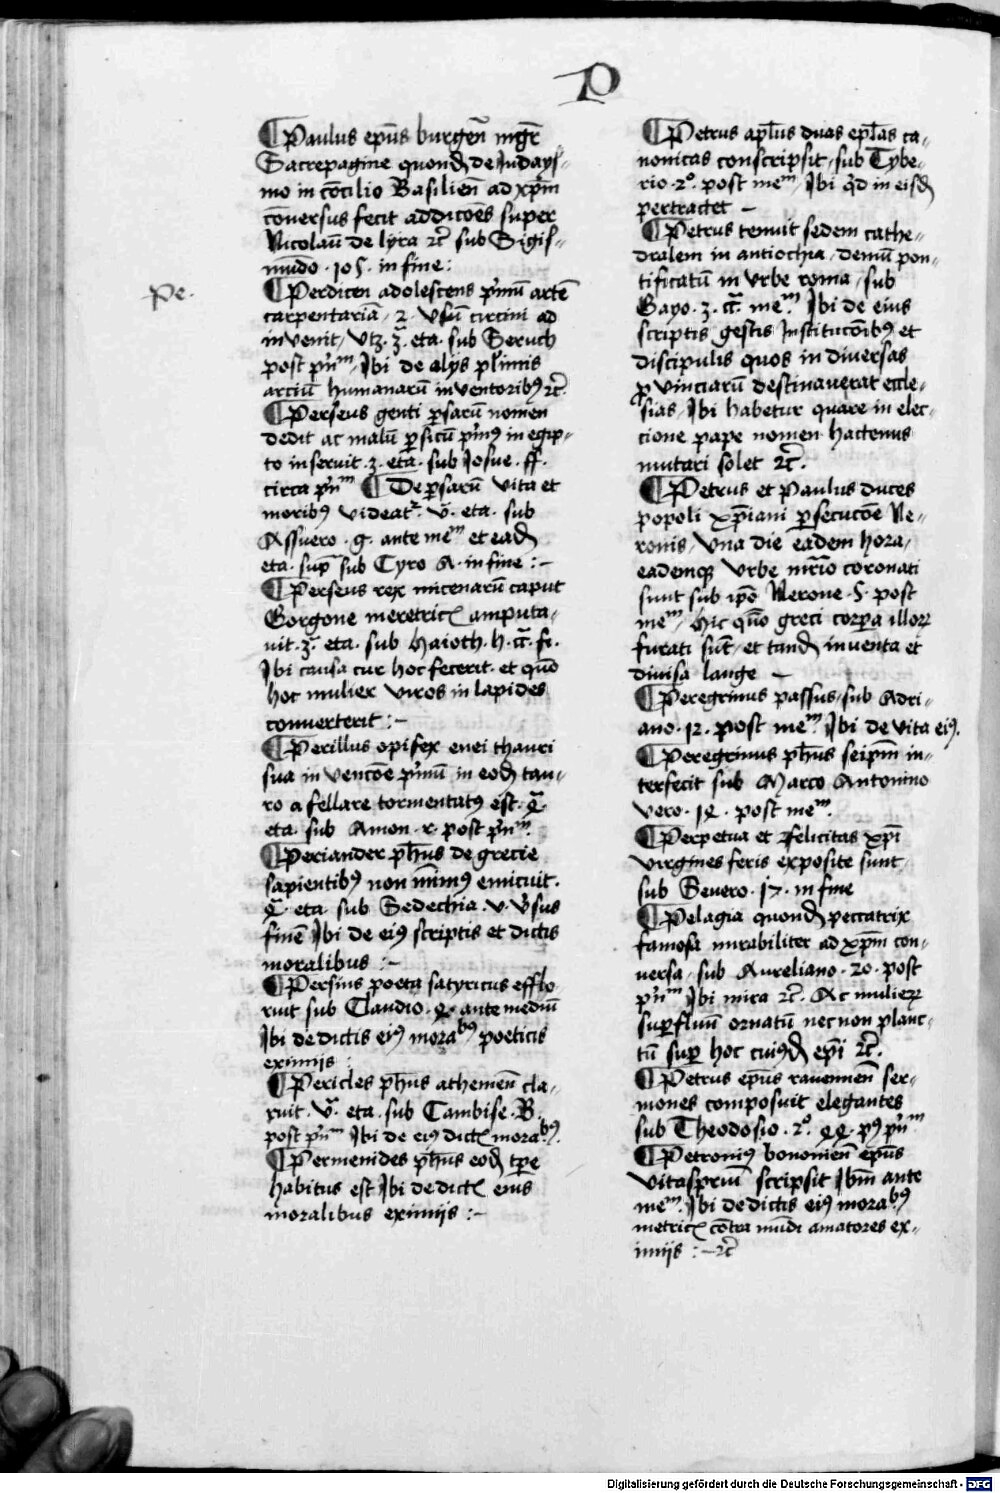 P
¶Paulus ep̄us burgeñ mgr̄
Sacrepagine quond̄ de Judays⸗
mo in cōcilio Basilien̄ ad xp̄m
cōuersus fecit addicōes super
Nicolaū de lyra ⁊c̄ sub Sigis⸗
mūdo · 105 · in fine :
Pe·
¶Perdicen adolescens p̓mū artē
carpentariā · ⁊ · vsū circini ad
inuenit / vtz · 3ᵃ · eta · sub Seruch
post p̓nᵐ / Ibi de alijs pl̓imis
arciū humanarū inuentoribꝰ ⁊c̄
¶Perseus genti ꝑsarū nomen
dedit ac malū ꝑsicū p̓mꝰ in egip⸗
to inseruit · 3 · etā · sub Josue · ff ·
circa p̓nᵐ ¶De ꝑsarū vita et
moribꝰ videatᷣ · v̄ · eta · sub
Assuero · g · ante meᵐ et ead̄
eta · sup̄ sub Cyro A · in fine : –
¶Perseus rex micenarū caput
Gorgone meretricꝭ amputa⸗
uit · 3ᵃ · eta · sub Haioth · h ·
Ibi causa cur hoc fecerit · et quō
hoc mulier viros in lapides
conuerterit : –
¶Perillus opifex enei thauri
sua in vencōe p̓mū in eod̄ tau⸗
ro a fellare tormentatꝰ est · 4ᵃ ·
eta · sub Amon · r · post p̓nᵐ ·
¶Periander ph̄us de grecie
sapientibꝰ non mīmꝰ emicuit ·
4ᵃ · eta · sub Sedechia · v · v̓sus
finē Ibi de eiꝰ scriptis et dictis
moralibus : –
¶Persius poeta satyricus efflo⸗
ruit sub Claudio · 4 · ante mediū
Ibi de dictis eiꝰ moraᵇꝰ poeticis
eximijs :
¶Pericles ph̄us atheniēn cla⸗
ruit · v̄ᵃ · eta · sub Cambise · B ·
post p̓nᵐ Ibi de eiꝰ dictꝭ moraᵇꝰ ·
¶Permenides ph̄us eod̄ tp̄e
habitus est Ibi de dictꝭ eius
moralibus eximijs : –
¶Petrus apl̄us duas epl̄as ca⸗
nonicas conscripsit / sub Tybe⸗
rio · 2° · post meᵐ / Ibi q̓d in eisd̄
pertractet –
¶Petrus tenuit sedem cathe⸗
dralem in antiochia / demū pon⸗
tificatū in vrbe roma / sub
Gayo · 3 · meᵐ · Ibi de eius
scriptis gestis Institucōibꝰ et
discipulis quos in diuersas
ꝓuinciarū destinauerat eccle⸗
sias / Ibi habetur quare in elec⸗
cione pape nomen hactenus
mutari solet ⁊c̄ ·
¶Petrus et Paulus duces
popoli xp̄iani ꝑsecucōe Ne⸗
ronis / vna die eadem hora /
eademqꝫ vrbe mr̄io coronati
sunt sub ip̄o Nerone · 5 · post
meᵐ / hic quō greci corp̄a illoꝝ
furati sūt / et tand̄ inuenta et
diuisa lange –
¶Peregrinus passus / sub Adri⸗
ano · 12 · post meᵐ Ibi de vita eiꝰ ·
¶Peregrinus ph̄us seipm̄ in⸗
terfecit sub Marco Antonino
vero · 14 · post meᵐ ·
¶Perpetua et Felicitas xp̄i
virgines feris exposite sunt
sub Seuero · 17 · in fine
¶Pelagia quond̄ peccatrix
famosa mirabiliter ad xp̄m con⸗
uersa / sub Aureliano · 20 · post
p̓nᵐ Ibi mira ⁊c̄ · Ac mulieꝝ
suꝑfluū ornatū necnon planc⸗
tū suꝑ hoc cuiꝰd̄ ep̄i ⁊c̄ ·
¶Petrus ep̄us rauennēn ser⸗
mones composuit elegantes
sub Theodosio · 2° · 44 · pꝰ p̓nᵐ
¶Petroniꝰ bononien̄ ep̄us
vitasprum̄ scripsit Ibm̄ ante
meᵐ · Ibi de dictis eiꝰ moraᵇꝰ
metricꝭ cōtra mūdi amatores ex⸗
imijs : – ⁊c̄
Digitalisierung gefördert durch die Deutsche Forschungsgemeinschaft - DFG